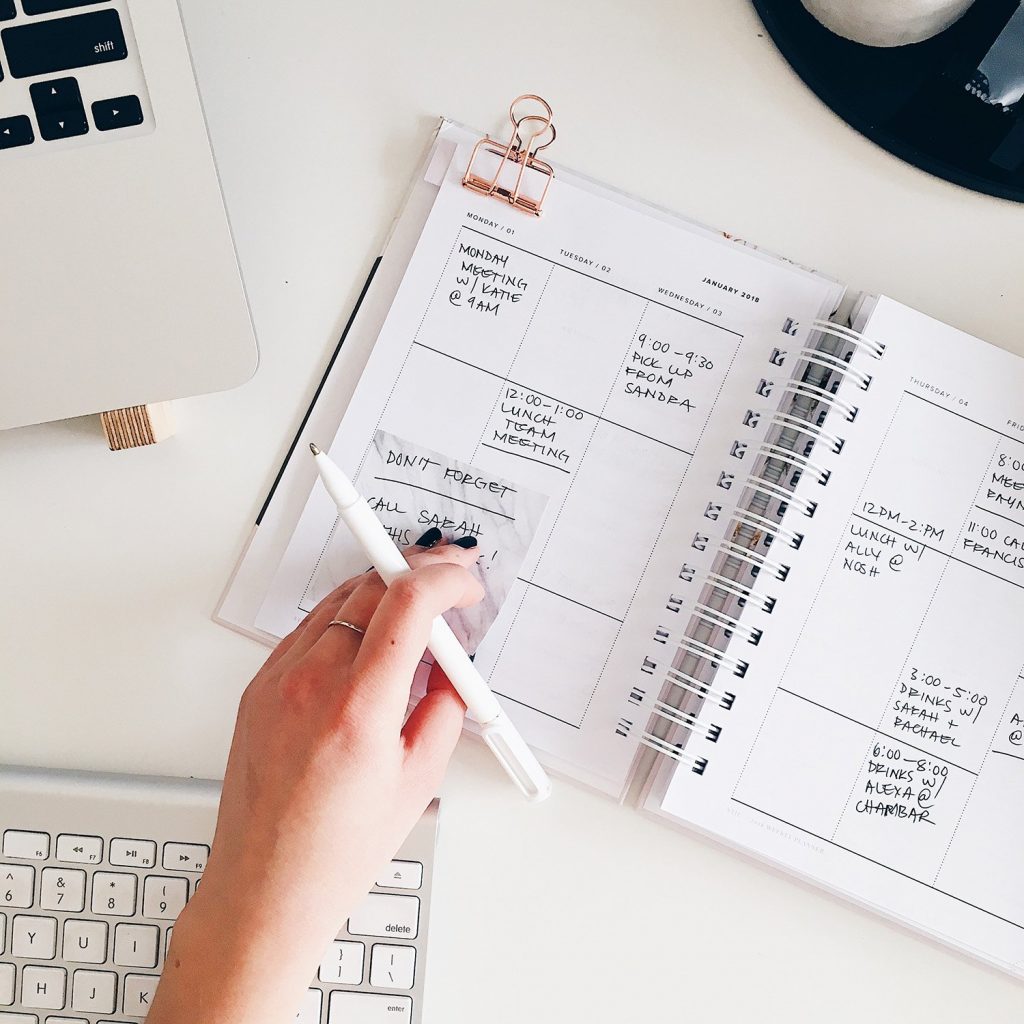 shift
MONDAY / 01
TUESDAY / 02
JANUARY 2018
WEDNESDAY / 03
MONDAY
MEETING
W/ KATIE
@ 9AM
9:00-9:30
PICK UP
FROM
SANDRA
12:00-1:00
LUNCH
TEAM
MEETING
DON'T FORGET
CALL SARAH
THURSDAY / 04
8:0
MEE
11:00 CAL
FRANCIS
12PM-2PM
LUNCH W/
ALLY @
NOSH
3:00-5:00
DRINKS W/
SARAH +
RACHAEL
A
@
6:00-8:00
DRINKS W/
ALEXA @
CHAMBAR
F6
F7
F8
F9
^ & * (
6 7 8 9
delete
Y U I
} |
] \
H J K
enter